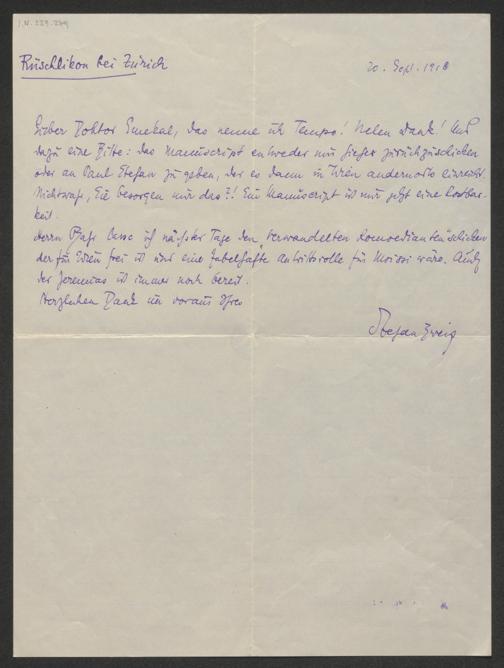 I.N. 229.249
Rüschlikon bei Zürich
20. Sept. 1918
Lieber Doktor Smekal, das nenne ich Tempo! Vielen Dank! Und
dazu eine Bitte: das Manuscript entweder mir hieher zurückzuschicken
oder an Paul Stefan zu geben, der es dann in Wien andernorts einreicht.
Nichtwahr, Sie besorgen mir das?! Ein Manuscript ist mir jetzt eine Kostbar-
keit.
Herrn lasse ich nächster Tage den „verwandelten Komoedianten" schicken
der für Wien frei ist und eine fabelhafte Antrittsrolle für Moissi wäre. Auch
der Jeremias ist immer noch bereit.
Herzlichen Dank im voraus Ihres
Stefan Zweig